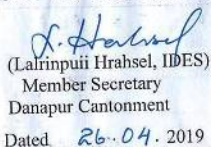 L. Hrahsel
(Lalrinpuii Hrahsel, IDES)
Member Secretary
Danapur Cantonment
Dated 26.04.2019